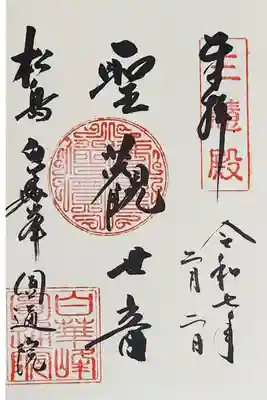 奉拝
三慧殿
令和七年
月二日
聖観世音
松島 白華峯 圓通院
白華峰